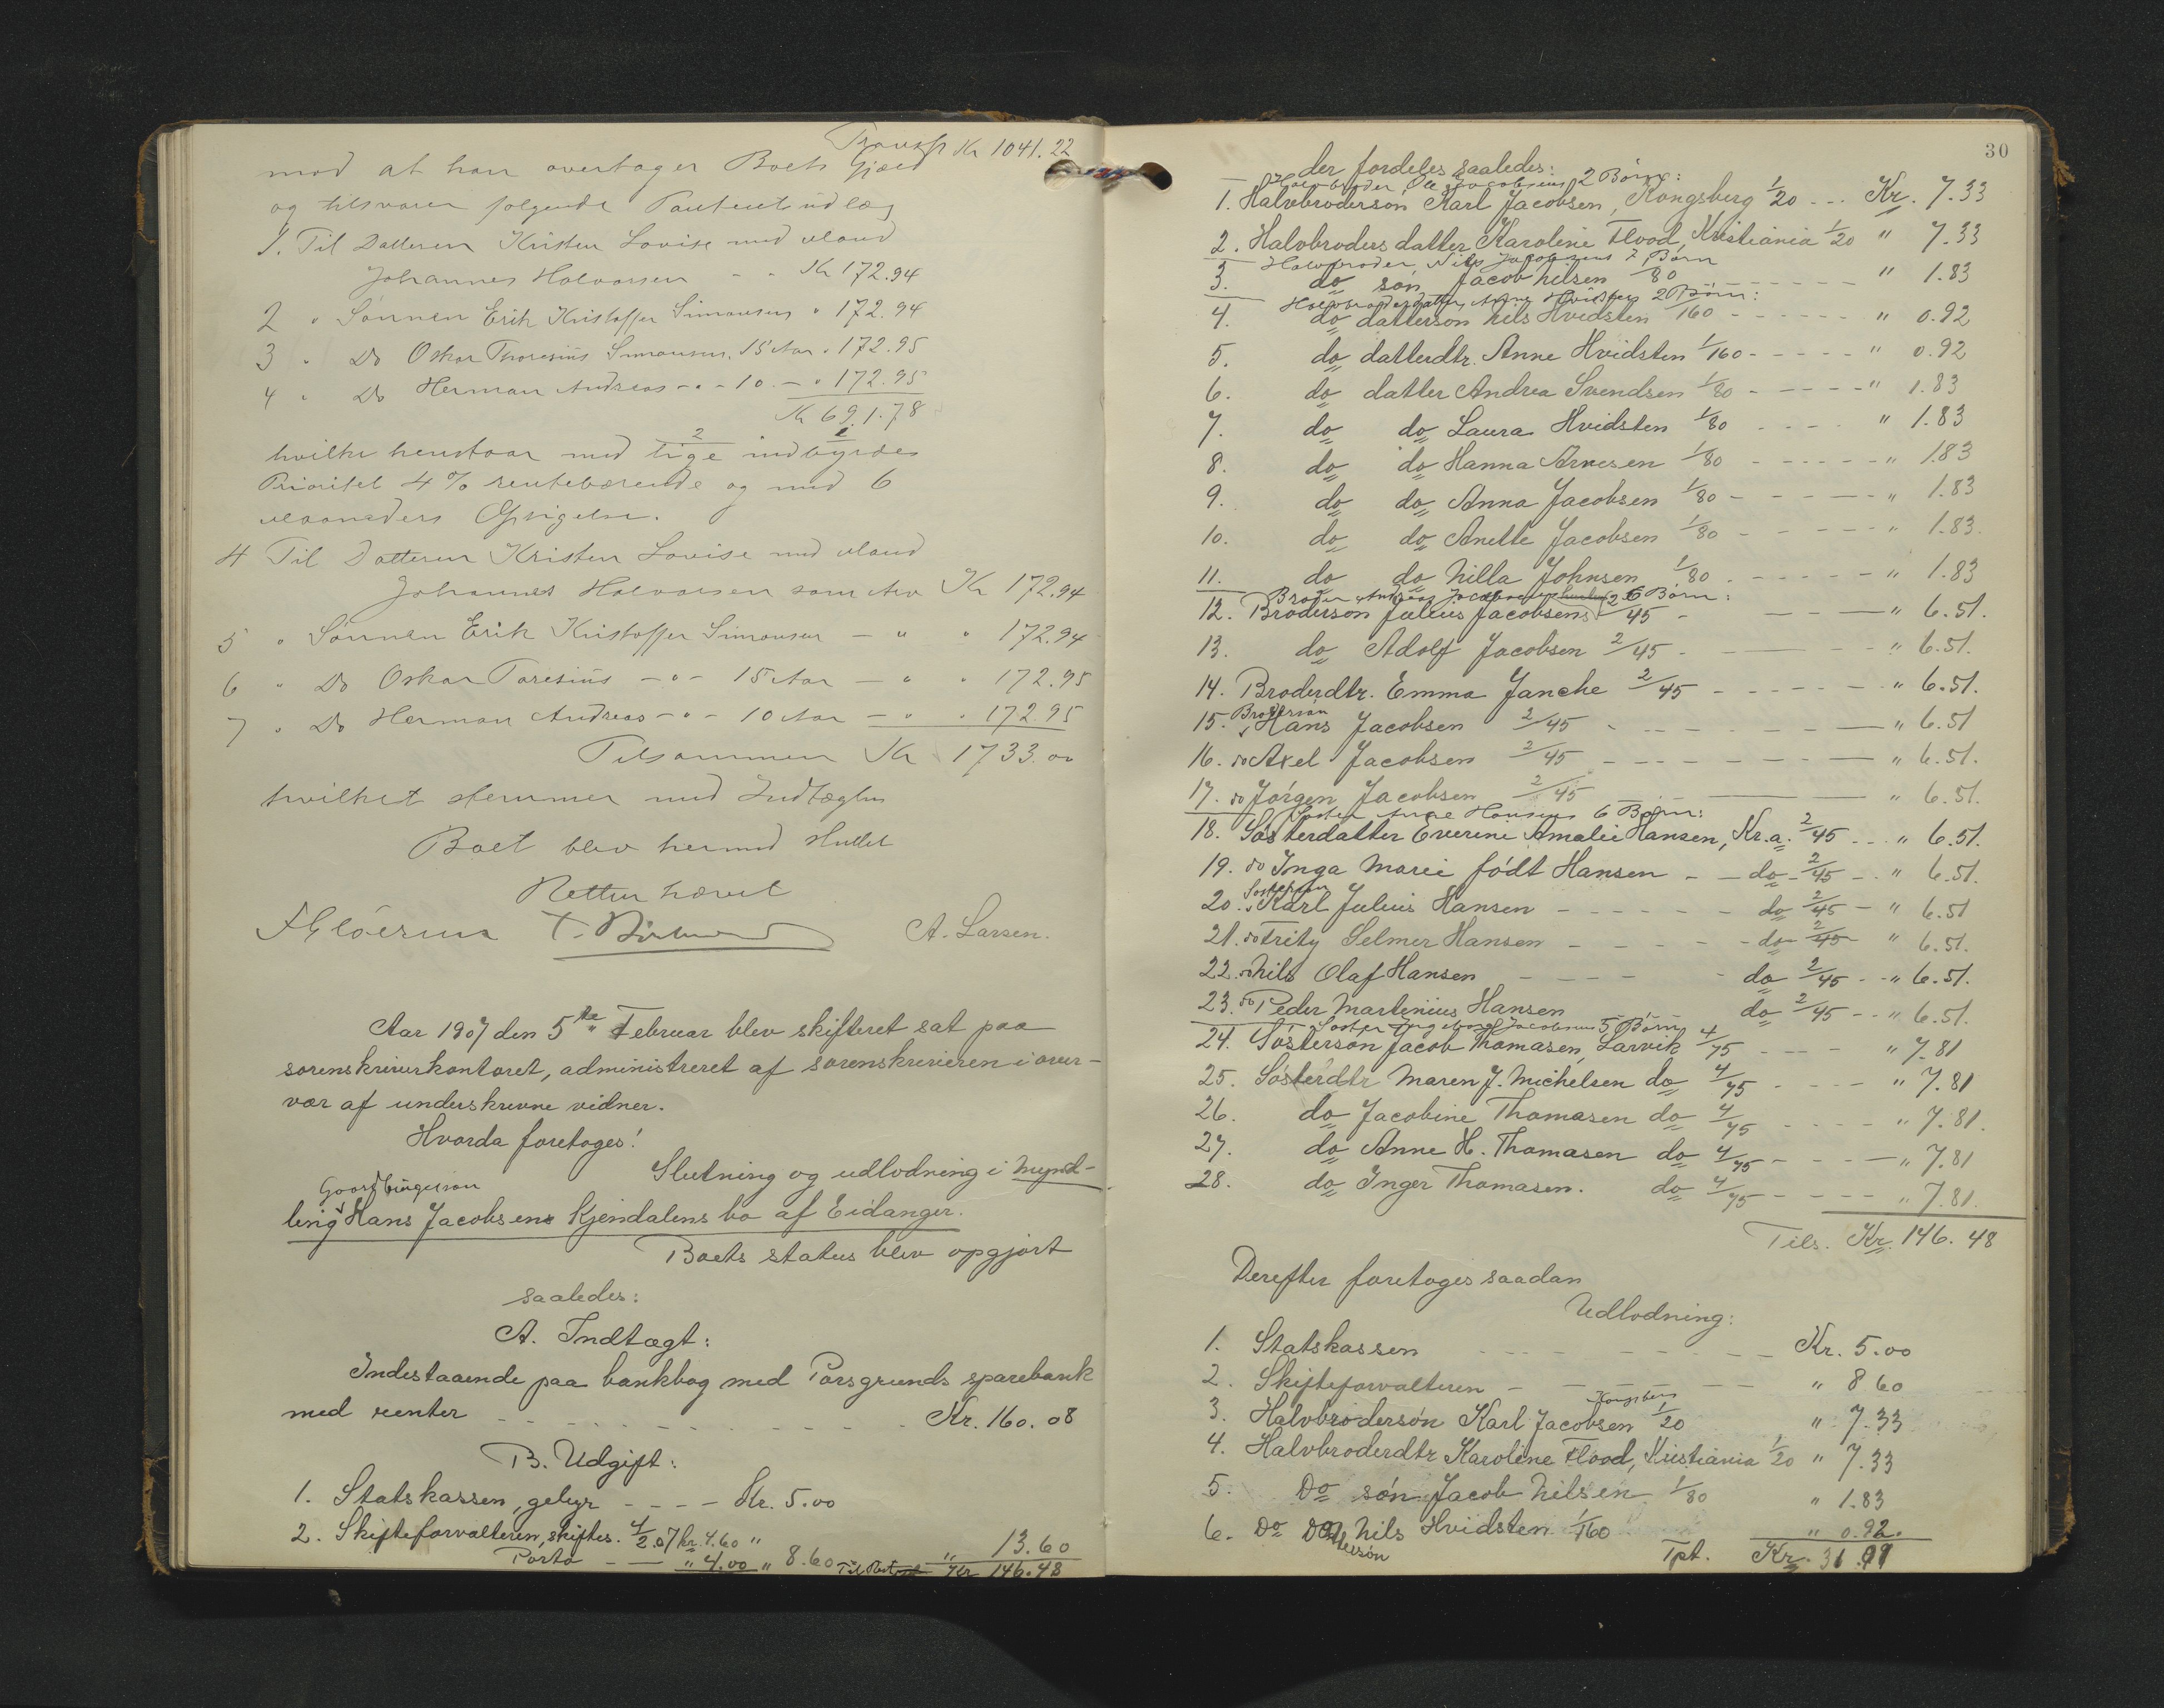 Transp Kr 1041.22
mod at han overtager Boets Gjæld
og tilsvarer følgende Panteutlæg
1. Til Datteren Kristen Lovise med Mand
Johannes Halvorsen - - Kr 172.94
2 " Sønnen Erik Kristoffer Simonsen " 172.94
3 " Do Oskar Thoresius Simonsen, 15 Aar " 172.95
4 " Do Herman Andreas - " - 10 - " 172.95
Kr 691.78
hvilke henstaar med lige indbyrdes
Prioritet 4 % rentebærende og med 6
Maaneders Opsigelse.
4 Til Datteren Kristen Lovise med Mand
Johannes Halvorsen som Arv Kr 172.94
5 " Sønnen Erik Kristoffer Simonsen - " " 172.94
6 " Do Oskar Toresius - " - 15 Aar - " " 172.95
7 " Do Herman Andreas - " - 10 Aar - " " 172.95
Tilsammen Kr 1733.00
hvilket stemmer med Indtægten
Boet blev hermed sluttet
Retten hævet
A. Larsen.
Aar 1907 den 5te Februar blev skifteret sat paa
sorenskriverkontoret, administreret af sorenskriveren i over-
vær af underskrevne vidner.
Hvorda foretoges!
Slutning og udlodning i Mynd-
ling Hans Jacobsens Kjendalens bo af Eidanger.
Boets status blev opgjort
saaledes:
A. Indtægt:
Indestaaende paa bankbog med Porsgrunds sparebank
med renter - - - - Kr. 160.08
B. Udgift:
1. Statskassen, gebyr - - - - Kr. 5.00
2. Skifteforvalteren, skiftes. 4/2.07 kr. 4.60 " 13.60
Porto - - " 4.00 " 8.60 Kr 146.48
30
der fordeles saaledes:
Halvbroder Ole Jacobsens 2 Børn:
1. Halvbrodersøn Karl Jacobsen, Kongsberg 1/20 - - - Kr. 7.33
2. Halvbroders datter Karoline Flood, Kristiania 1/20 " 7.33
Halvbroder Nils Jacobsens 7 Børn
3. do søn Jacob Nilsen 1/80 - - - - " 1.83
Halvbroderdatter Hvidstens 2 Børn:
4. do dattersøn Nils Hvidsten 1/160 - - - - " 0.92
5. do datterdtr. Anne Hvidsten 1/160 - - - - " 0.92
6. do datter Andrea Svendsen 1/80 - - - - " 1.83
7. do do Laura Hvidsten 1/80 - - - - " 1.83
8. do do Hanna Arnesen 1/80 - - - - " 1.83
9. do do Anna Jacobsen 1/80 - - - - " 1.83
10. do do Anette Jacobsen 1/80 - - - - " 1.83.
11. do do Nilla Johnsen 1/80 - - - - " 1.83
Broder Andreas Jacobsens 6 Børn:
12. Brodersøn Julius Jacobsens 2/45 - - - - " 6.51.
13. do Adolf Jacobsen 2/45 - - - - " 6.51.
14. Broderdtr. Emma Janche 2/45 - - - - " 6.51.
15. Brodersøn Hans Jacobsen 2/45 - - - - " 6.51
16. do Axel Jacobsen 2/45 - - - - " 6.51.
17. do Jørgen Jacobsen 2/45 - - - - " 6.51.
Søster Anne Hansens 6 Børn:
18. Søsterdatter Everine Amalie Hansen, Kr.a. 2/45 - - - " 6.51.
19. do Inga Marie født Hansen - - do - 2/45 - " 6.51.
20. Søstersøn Karl Julius Hansen - - - - do 2/45 - " 6.51
21. do Fritz Selmer Hansen - - - - do 2/45 " 6.51.
22. do Nils Olaf Hansen - - - - do 2/45 - - " 6.51.
23. do Peder Martinius Hansen do 2/45 - - " 6.51.
Søster Ingeborg Jacobsens 5 Børn
24. Søstersøn Jacob Thomasen, Larvik 4/75 - - - " 7.81
25. Søsterdtr Maren J. Michelsen do 4/75 - - - " 7.81
26. do Jacobine Thomasen do 4/75 - - - " 7.81.
27. do Anne H. Thomasen do 4/75 - - - " 7.81
28. do Inger Thomasen. do 4/75 - - - " 7.81.
Tils. Kr. 146.48
Derefter foretoges saadan
Udlodning:
1. Statskassen - - - - Kr. 5.00
2. Skifteforvalteren - - - - " 8 60
3. Halvbrodersøn Karl Jacobsen Kongsberg 1/20 " 7.33
4. Halvbroderdtr Karoline Flood, Kristiania 1/20 " 7.33
5. Do søn Jacob Nilsen 1/80 " 1.83
6. Do Dattersøn Nils Hvidsten 1/160 " 0.92.
Tpt. Kr. 31.01